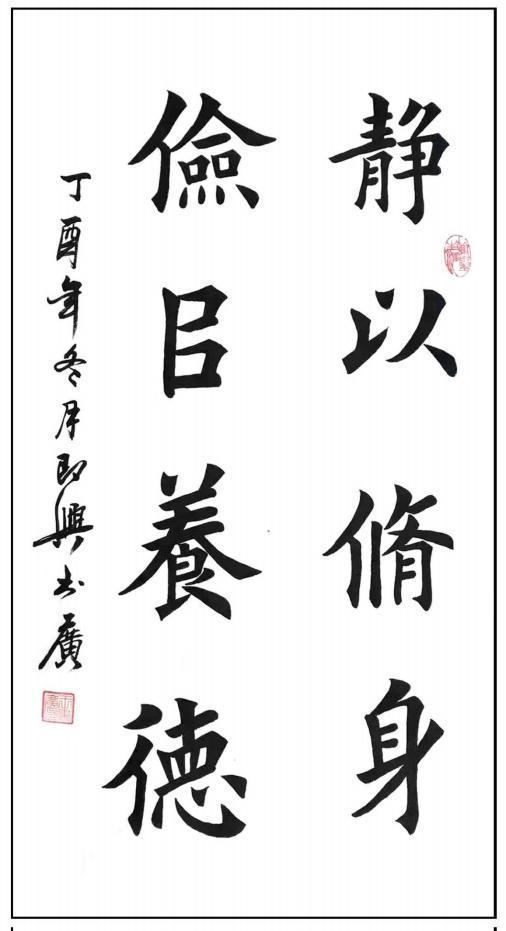 静以脩身
儉㠯養德
丁酉年冬月即興士廣